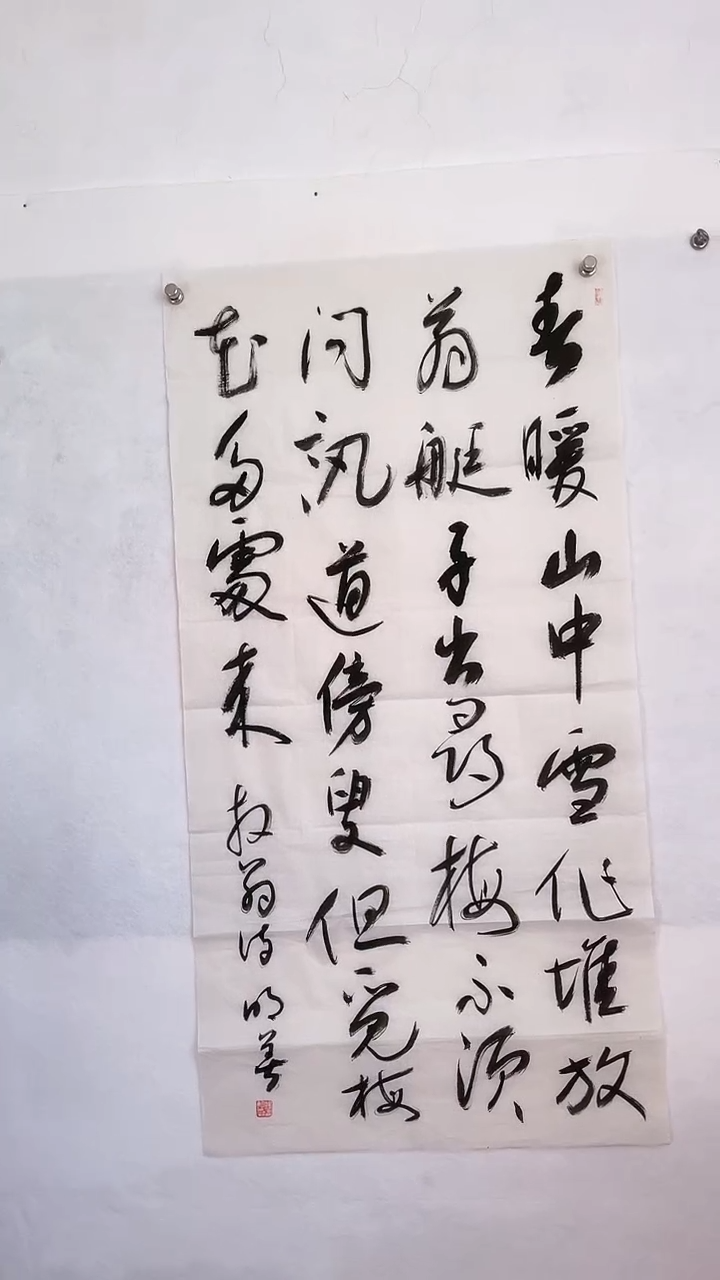 春暖山中雪作堆放
翁艇子出尋梅不須
问訊道傍叟但覓梅
花多處来 放翁诗 明善